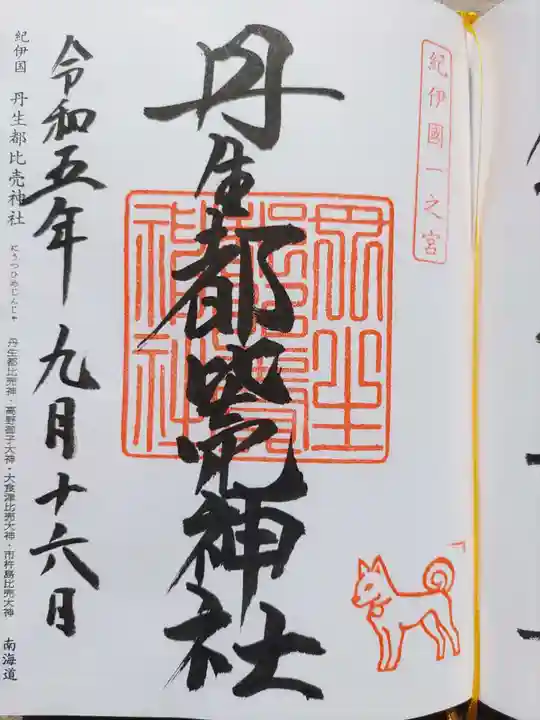 紀伊國一之宮
丹生都比売神社
令和五年九月十六日
紀伊国 丹生都比売神社 にうつひめじんじゃ 丹生都比売大神・高野御子大神・大食津比売大神・市杵島比売大神 南海道